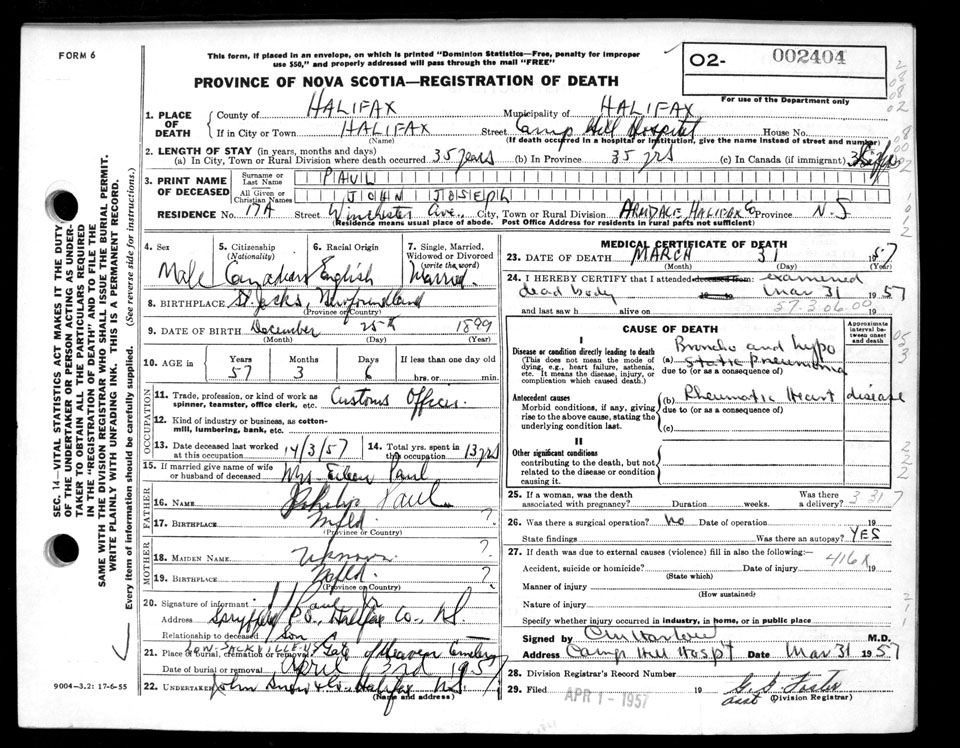 FORM 6
This form, if placed in an envelope, on which is printed "Dominion Statistics—Free, penalty for improper
use $50," and properly addressed will pass through the mail "FREE"
O2- 002404
PROVINCE OF NOVA SCOTIA—REGISTRATION OF DEATH
For use of the Department only
1. PLACE OF DEATH
County of HALIFAX Municipality of HALIFAX
If in City or Town HALIFAX Street Camp Hill Hospital House No.
(Name) (If death occurred in a hospital or institution, give the name instead of street and number)
2. LENGTH OF STAY (in years, months and days)
(a) In City, Town or Rural Division where death occurred 35 years (b) In Province 35 yrs (c) In Canada (if immigrant)
3. PRINT NAME OF DECEASED
Surname or Last Name PAUL
All Given or Christian Names JOHN JOSEPH
RESIDENCE No. 17A Street Winchester Ave., City, Town or Rural Division ARMDALE HALIFAX Co Province N.S
(Residence means usual place of abode. Post Office Address for residents in rural parts not sufficient)
SEC. 14—VITAL STATISTICS ACT MAKES IT THE DUTY
OF THE UNDERTAKER OR PERSON ACTING AS UNDER-
TAKER TO OBTAIN ALL THE PARTICULARS REQUIRED
IN THE "REGISTRATION OF DEATH" AND TO FILE THE
SAME WITH THE DIVISION REGISTRAR WHO SHALL ISSUE THE BURIAL PERMIT.
WRITE PLAINLY WITH UNFADING INK. THIS IS A PERMANENT RECORD.
Every item of information should be carefully supplied. (See reverse side for instructions.)
4. Sex Male
5. Citizenship (Nationality) Canadian
6. Racial Origin English
7. Single, Married, Widowed or Divorced (write the word) Married.
8. BIRTHPLACE St. Jacks, Newfoundland
(Province or Country)
9. DATE OF BIRTH December 25th 1899
(Month) (Day) (Year)
10. AGE in Years 57 Months 3 Days 6 If less than one day old hrs. or min.
OCCUPATION
11. Trade, profession, or kind of work as spinner, teamster, office clerk, etc. Customs Officer.
12. Kind of industry or business, as cotton-mill, lumbering, bank, etc.
13. Date deceased last worked at this occupation 14/3/57 14. Total yrs. spent in this occupation 13 yrs
15. If married give name of wife or husband of deceased Mrs. Eileen Paul
FATHER
16. NAME Paul
17. BIRTHPLACE Nfld. ?
(Province or Country)
MOTHER
18. MAIDEN NAME Unknown. ?
19. BIRTHPLACE Nfld. ?
(Province or Country)
20. Signature of informant Paul Jr
Address Spryfield P.O., Halifax Co., N.S.
Relationship to deceased Son
21. Place of burial, cremation or removal SACKVILLE Gate of Heaven Cemetery
Date of burial or removal April 3rd 1957
22. Undertaker John Snow & Co. Halifax N.S.
(Name and address)
9004—3.2: 17-6-55
MEDICAL CERTIFICATE OF DEATH
23. DATE OF DEATH MARCH 31 1957
(Month) (Day) (Year)
24. I HEREBY CERTIFY that I attended deceased from: examined
dead body to Mar 31 1957
and last saw h alive on 57-306000
CAUSE OF DEATH
Approximate interval between onset and death
I
Disease or condition directly leading to death
(This does not mean the mode of dying, e.g., heart failure, asthenia, etc. It means the disease, injury, or complication which caused death.)
(a) Broncho and hypostatic Pneumonia
due to (or as a consequence of)
Antecedent causes
Morbid conditions, if any, giving rise to the above cause, stating the underlying condition last.
(b) Rheumatic Heart disease
due to (or as a consequence of)
(c)
II
Other significant conditions
contributing to the death, but not related to the disease or condition causing it.
25. If a woman, was the death associated with pregnancy? Duration weeks. Was there a delivery? 3317
26. Was there a surgical operation? No Date of operation 19
State findings Was there an autopsy? YES
27. If death was due to external causes (violence) fill in also the following:—
Accident, suicide or homicide? Date of injury 416X 19
(State which)
Manner of injury
(How sustained)
Nature of injury
Specify whether injury occurred in industry, in home, or in public place
Signed by M.D.
Address Camp Hill Hosp't Date Mar 31 1957
28. Division Registrar's Record Number
29. Filed APR 1 - 1957 19
asst (Division Registrar)